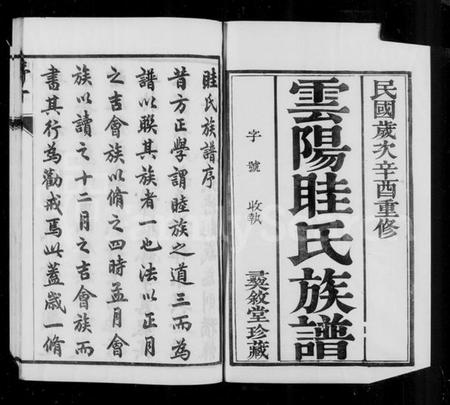 民國歲次辛酉重修
雲陽眭氏族譜
字號 收執
彛敘堂珍藏
眭氏族譜序
昔方正學謂睦族之道三而為
譜以聯其族者一也法以正月
之吉會族以脩之四時孟月會
族以讀之十二月之吉會族而
書其行為勸戒焉此蓋歲一脩